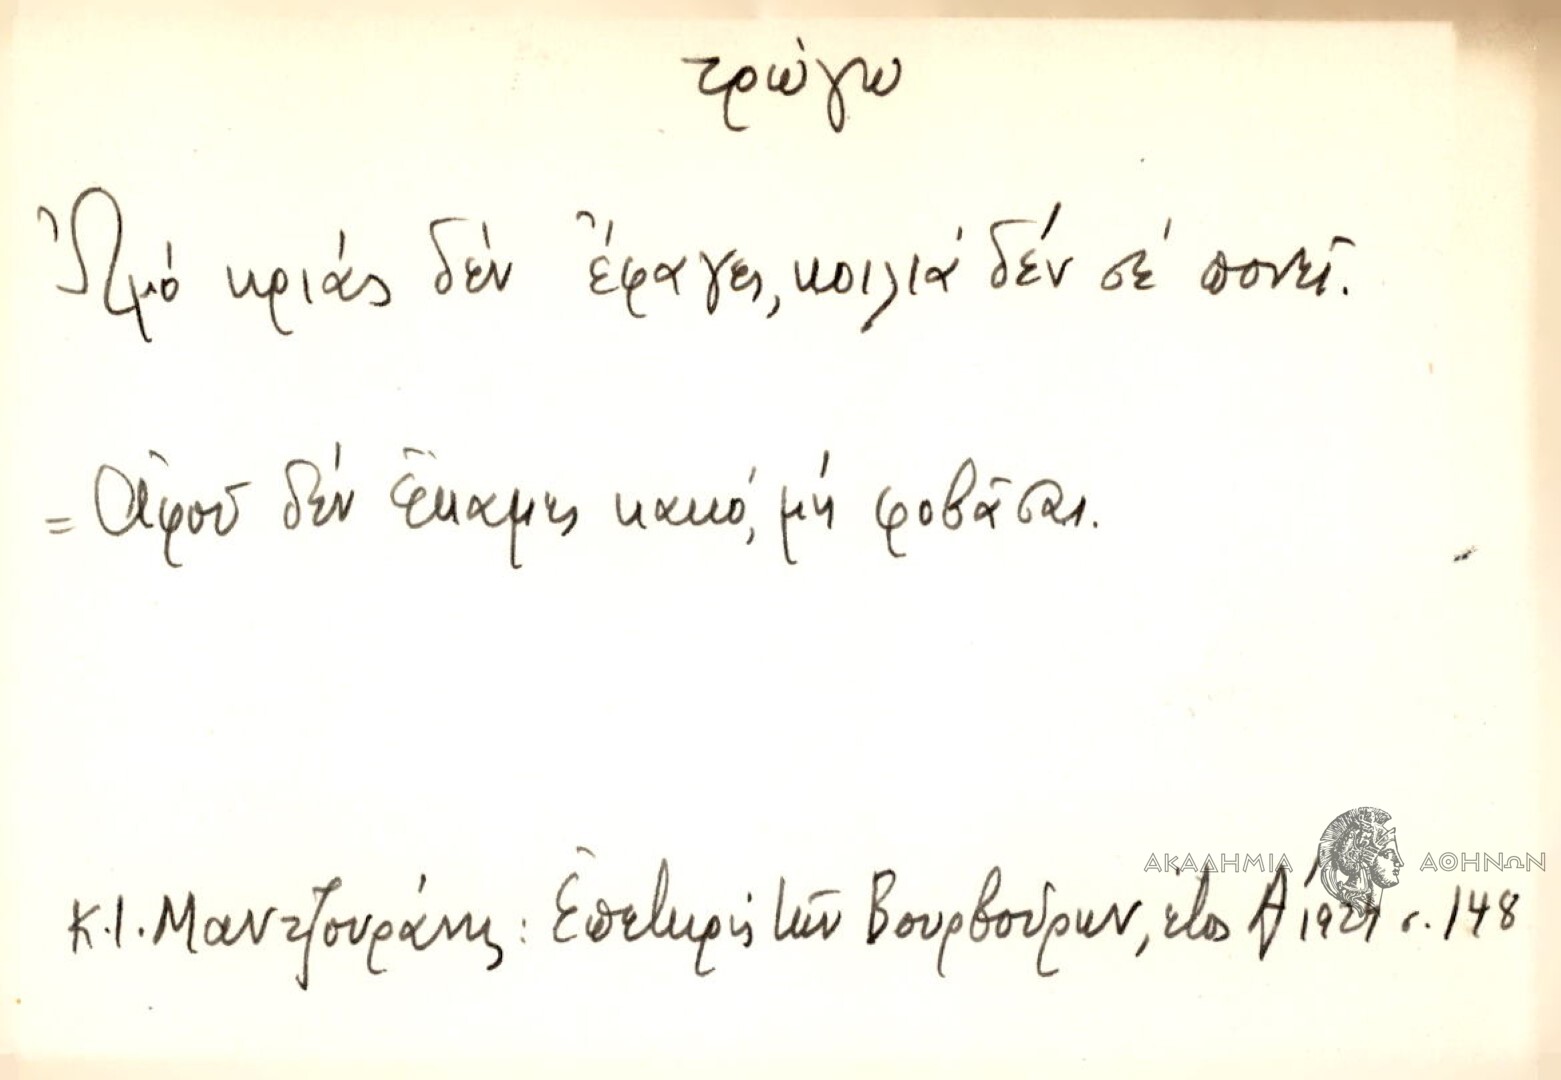 τρώγω
Ὠμό κριάς δέν ἔφαγες, κοιλιά δέν σέ πονεῖ.
= Ἀφοῦ δέν ἔκαμες κακό, μή φοβᾶσαι.
ΑΚΑΔΗΜΙΑ ΑΘΗΝΩΝ
Κ. Ι. Μαντζουράνης: Ἐπετηρίς τῶν Βουρβούρων, ἔτος Α΄ σ. 148